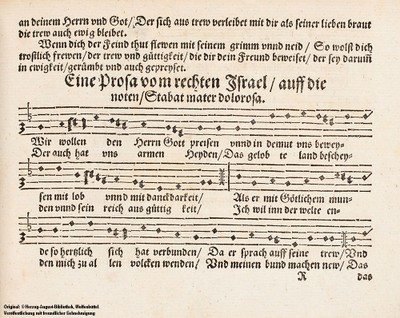 an deinem Herrn vnd Got/ Der sich aus trew verleibet mit dir als seiner lieben braut
die trew auch ewig bleibet.
Wenn dich der Feind thut flewen mit seinem grimm vnnd neid / So wolst dich
tröstlich frewen/ der trew vnd güttigkeit/ die dir dein Freund beweiset/ der sey darum̃
in ewigkeit/ gerümbt vnd auch gepreyset.
Eine Prosa vom rechten Israel / auff die
noten/ Stabat mater dolorosa.
Wir wollen den Herrn Got preisen vnnd in demut vns bewey-
Der auch hat vns armen Heyden/ Das gelob te land beschey-
sen mit lob vnnd mit danckbarkeit/ Als er mit Götlichem mun-
den vnnd sein reich aus güttig keit/ Ich wil inn der welte en-
de so hertzlich sich hat verbunden/ Da er sprach auff seine trew/ Vnd
den mich zu al len völcken wenden/ Vnd meinen bund machen new/ Das
R das
Original: © Herzog August Bibliothek, Wolfenbüttel.
Veröffentlichung mit freundlicher Genehmigung